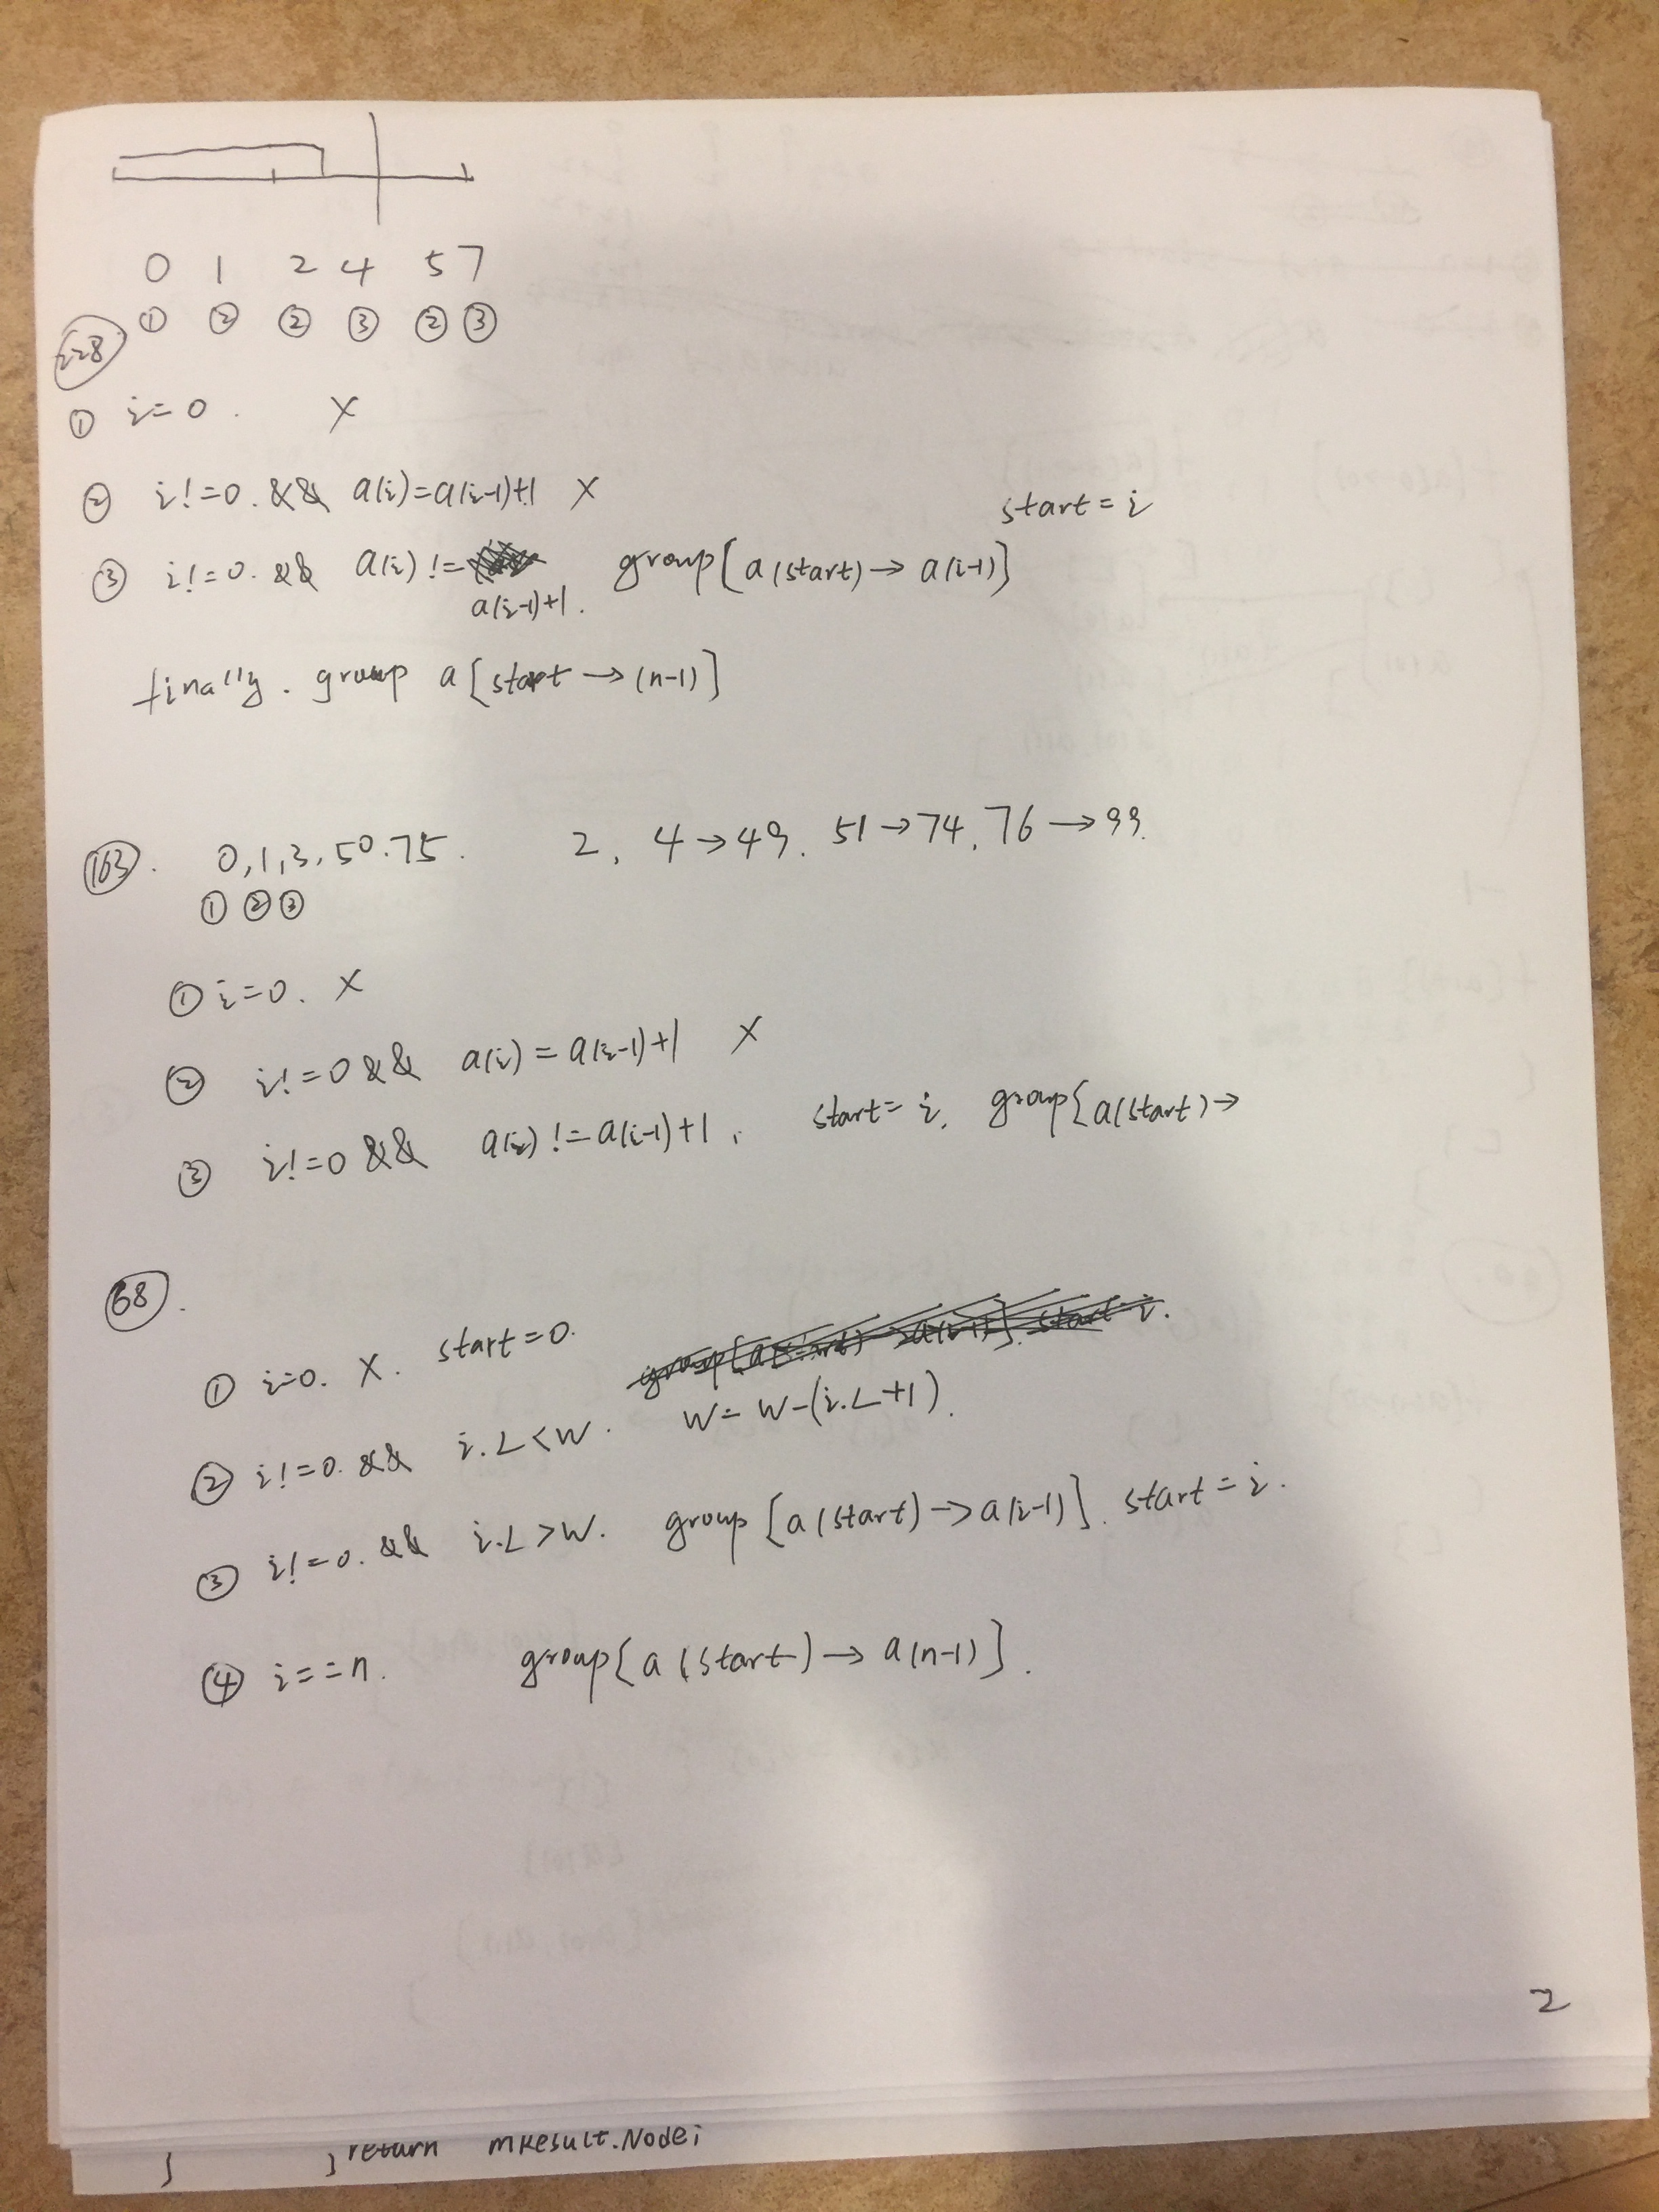 0 1 2 4 5 7
① ② ② ③ ② ③
228
① i=0. X
② i!=0. && a(i)=a(i-1)+1 X
start=i
③ i!=0. && a(i)!= group[a(start)→a(i-1)]
a(i-1)+1.
finally. group a[start→(n-1)]
163. 0,1,3,50.75. 2, 4→49. 51→74, 76→99.
① ② ③
① i=0. X
② i!=0 && a(i)=a(i-1)+1 X
③ i!=0 && a(i)!=a(i-1)+1, start=i, group[a(start)→
68.
① i=0. X. start=0.
group[a(start)→a(i-1)]. start=i.
② i!=0. && i.L<W. W=W-(i.L+1).
③ i!=0. && i.L>W. group[a(start)→a(i-1)]. start=i.
④ i==n. group[a(start)→a(n-1)].
2
} ;return mResult.Node;